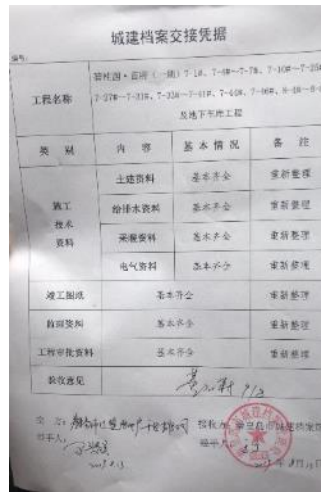 城建档案交接凭据
编号：
工程名称
碧桂园·首府（一期）7-1#、7-4#～7-7#、7-10#～7-25#
7-27#～7-31#、7-33#～7-41#、7-44#、7-46#、8-4#～8-
及地下车库工程
类 别 内 容 基本情况 备 注
施工
技术
资料
土建资料 基本齐全 重新整理
给排水资料 基本齐全 重新整理
采暖资料 基本齐全 重新整理
电气资料 基本齐全 重新整理
竣工图纸 基本齐全 重新整理
前期资料 基本齐全 重新整理
工程审批资料 基本齐全 重新整理
验收意见
接收方：秦皇岛市城建档案馆
经手人： 经手人：